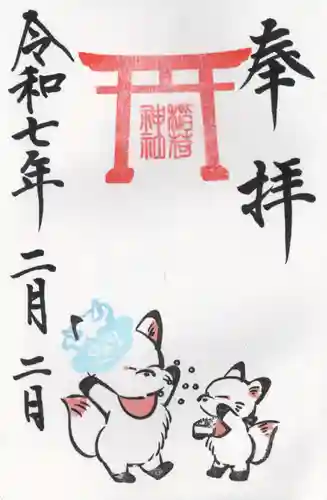 奉拝
稲荷神社
令和七年二月二日